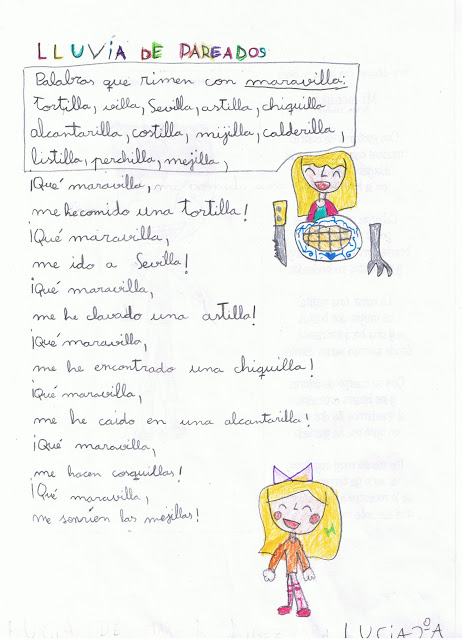 LLUVIA DE PAREADOS
Palabras que rimen con maravilla:
Tortilla, villa, Sevilla, astilla, chiquilla
alcantarilla, costilla, mijilla, calderilla,
listilla, perchilla, mejilla,
¡Qué maravilla,
me he comido una tortilla!
¡Qué maravilla,
me ido a Sevilla!
¡Qué maravilla,
me he clavado una astilla!
¡Qué maravilla,
me he encontrado una chiquilla!
¡Qué maravilla,
me he caido en una alcantarilla!
¡Qué maravilla,
me hacen cosquillas!
¡Qué maravilla,
me sonríen las mejillas!
LUCIA 2º A